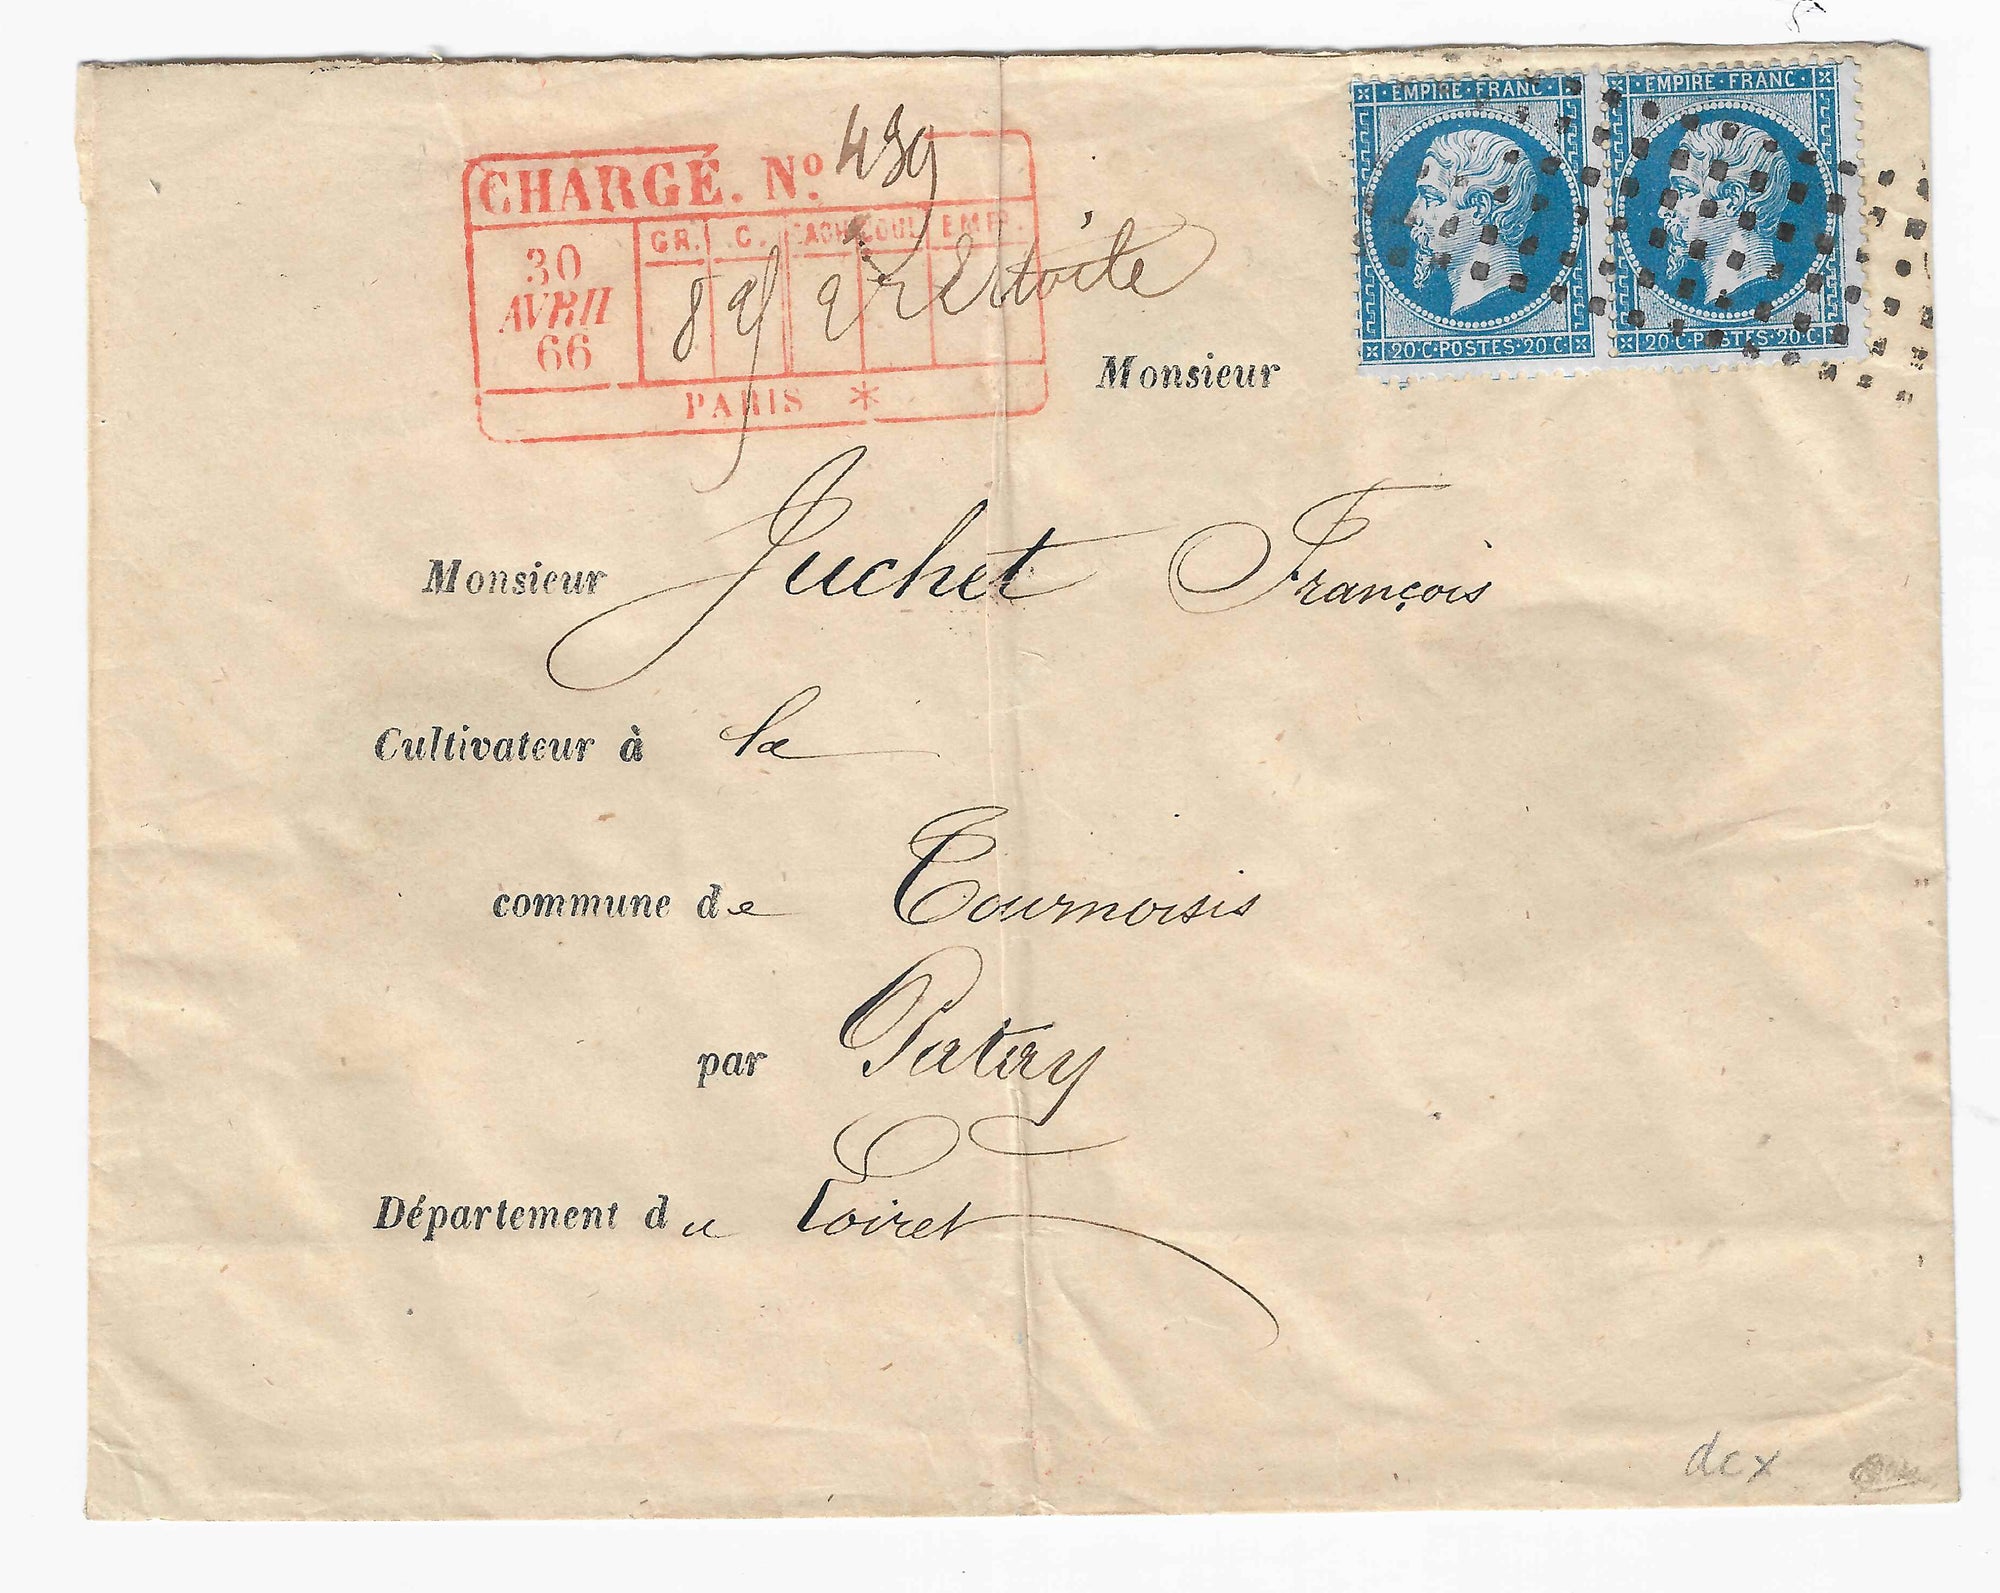 EMPIRE·FRANC· EMPIRE·FRANC·
20·C·POSTES·20·C 20·C·POSTES·20·C
CHARGÉ. No. 439
30 AVRIL 66
GR. C. CACH COUL EMPR.
8 2 étoile
PARIS *
Monsieur
Monsieur Juchet François
Cultivateur à la
commune de Tournoisis
par Patay
Département du Loiret
dcx